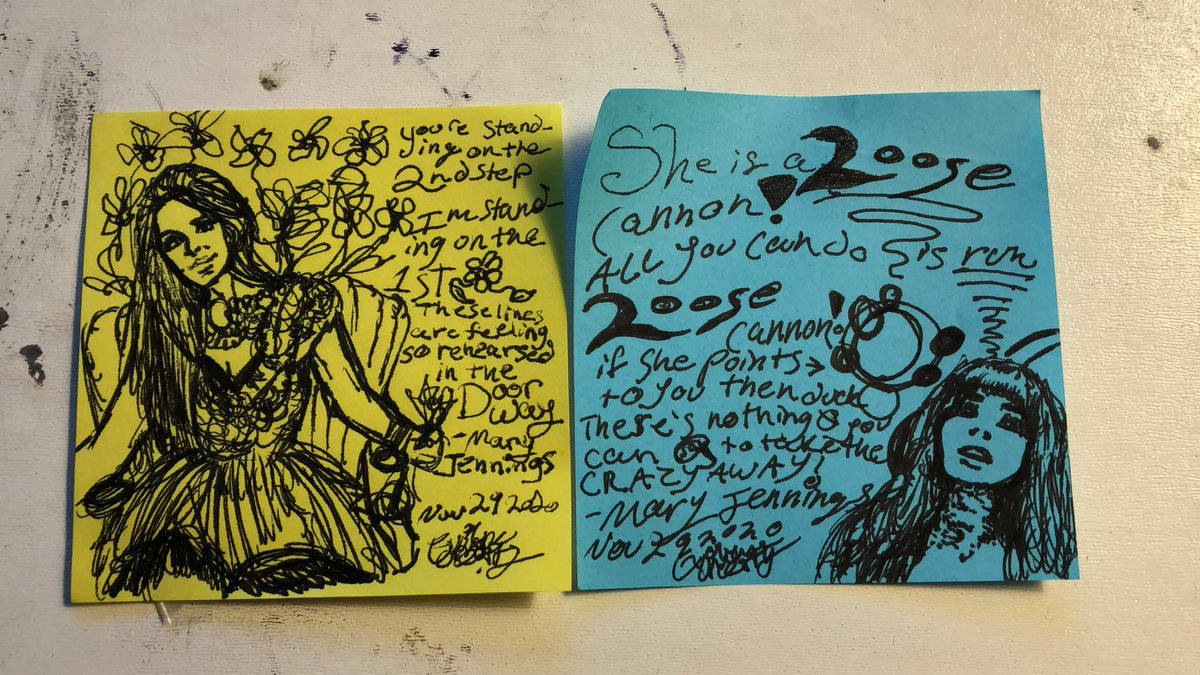 You're stand-
ing on the
2nd step
I'm stand-
ing on the
1ST
These lines
are feeling
so rehearsed
in the
Door
way
-Mary
Jennings
Nov 29 2020
She is a Loose
Cannon!
All you can do is run
Loose
cannon!
if she points
to you then duck
There's nothing you
can to take the
CRAZY AWAY!
-Mary Jennings
Nov 29 2020